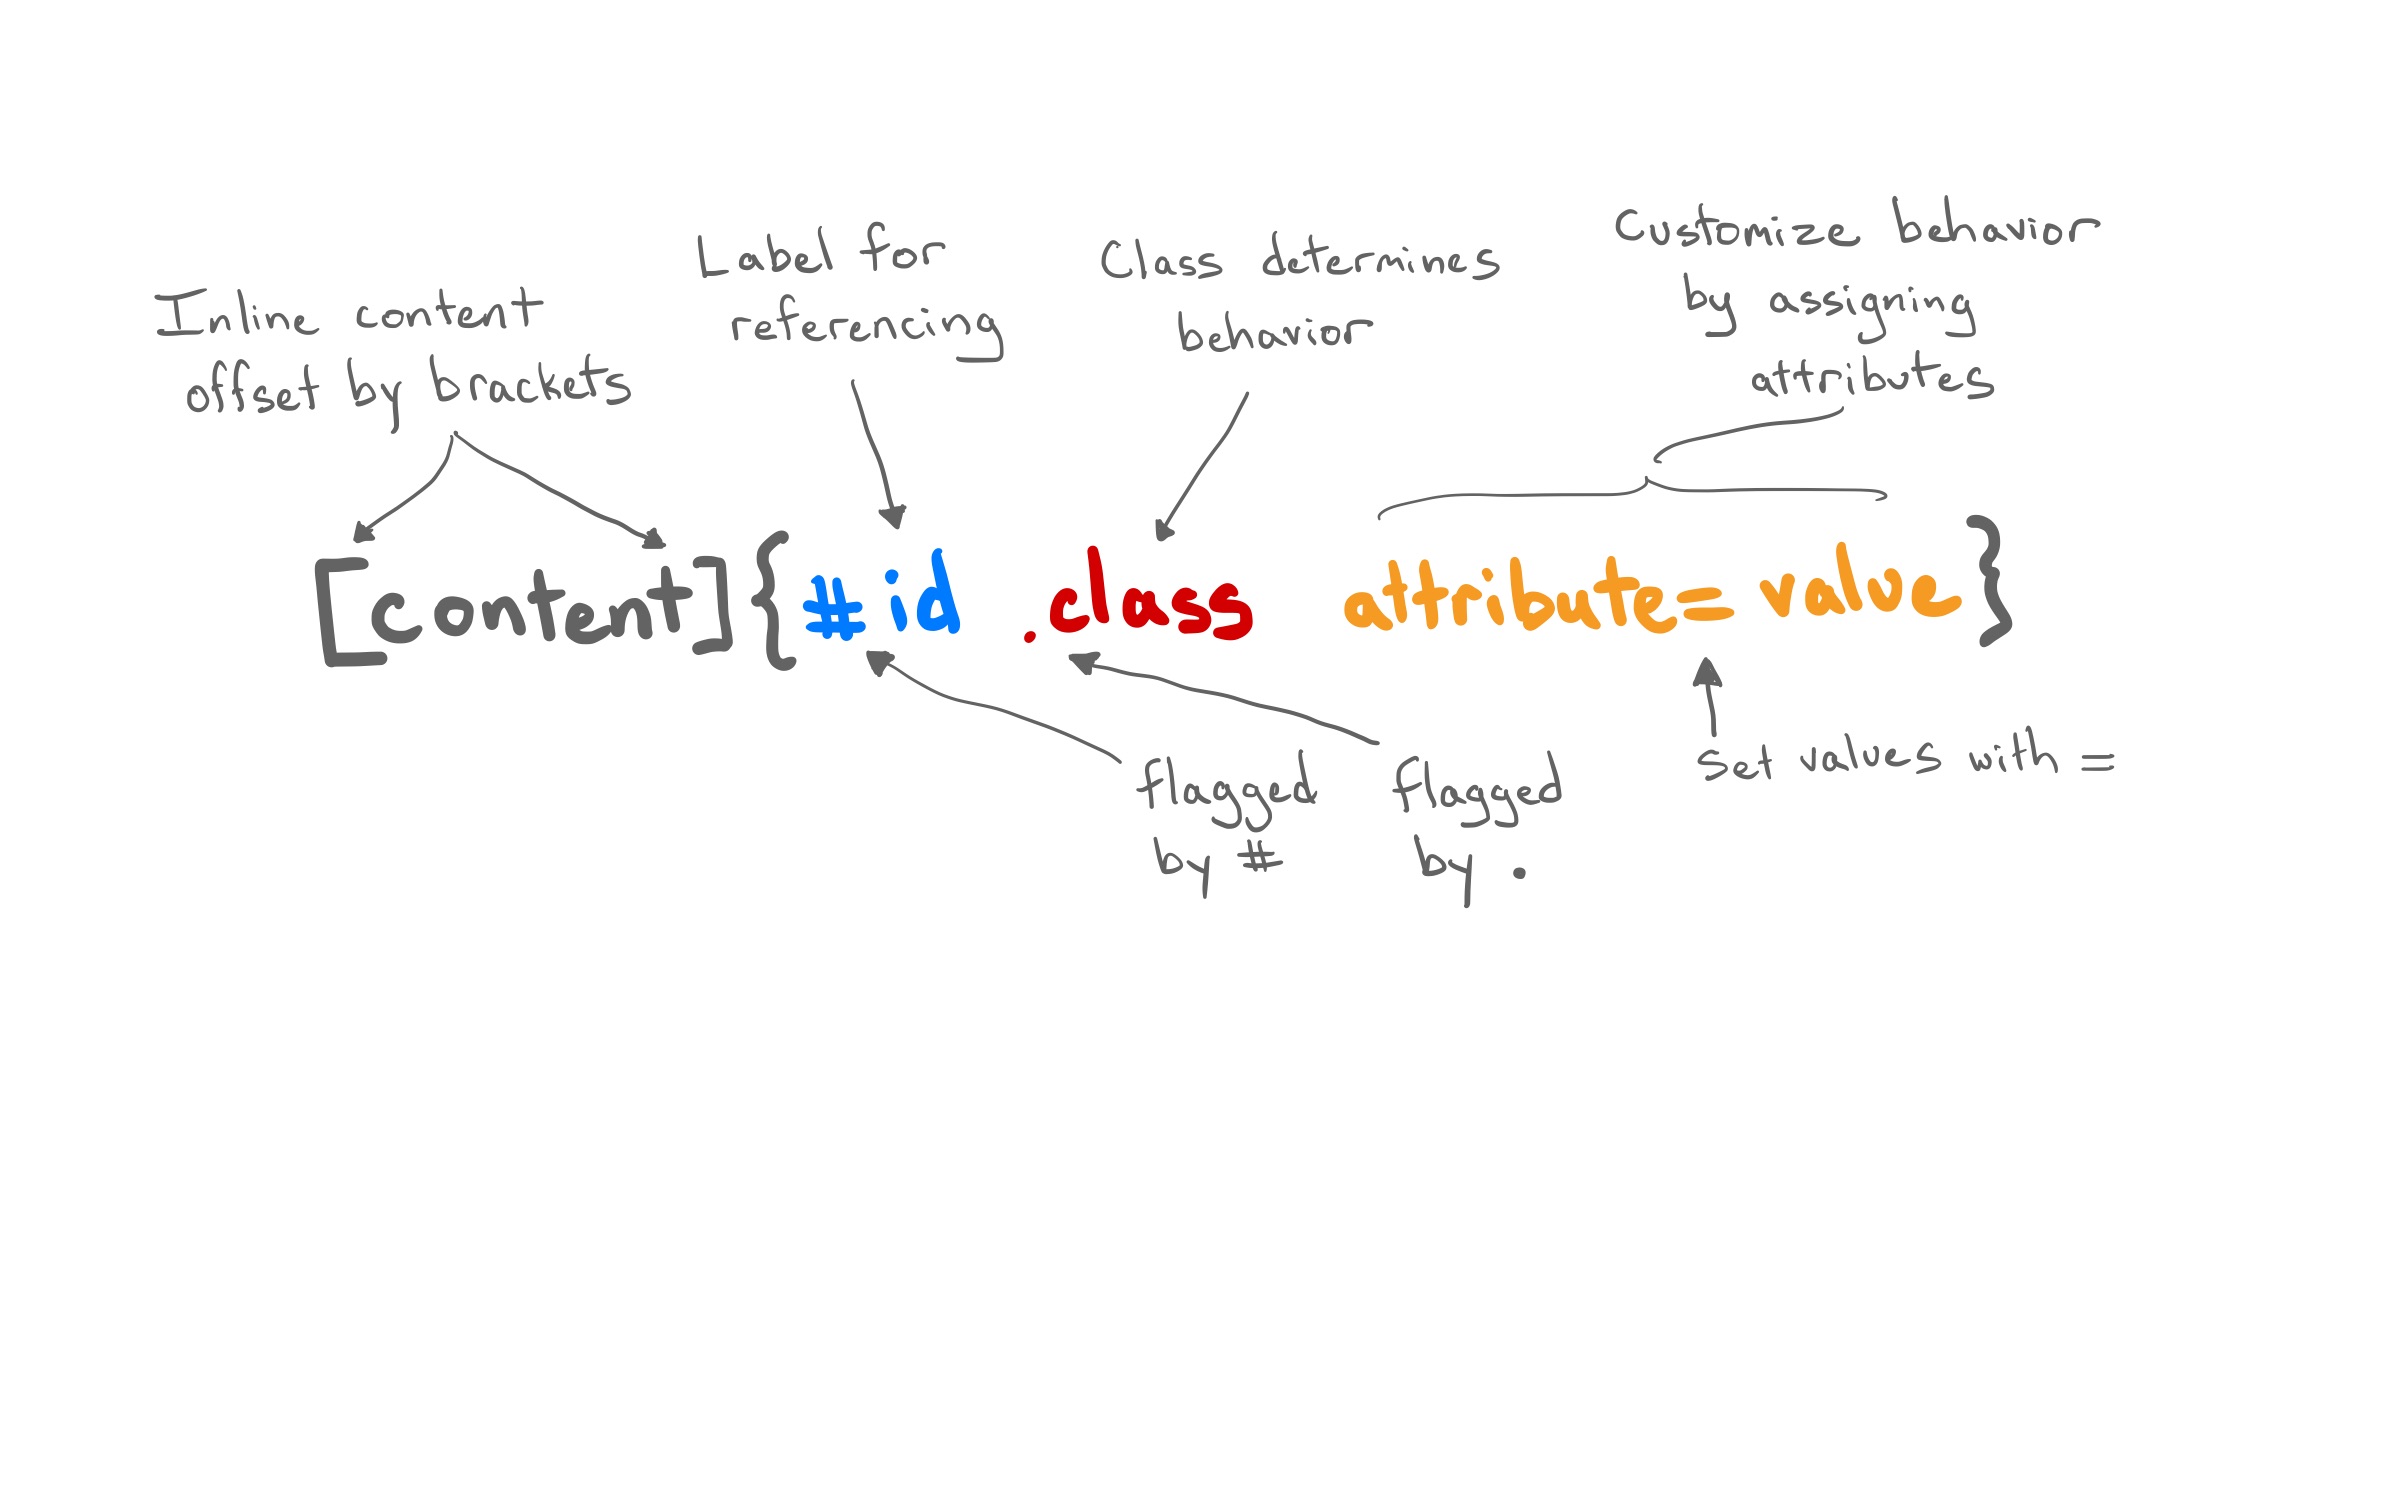 Inline content
offset by brackets
Label for
referencing
Class determines
behavior
Customize behavior
by assigning
attributes
[content]{#id .class attribute=value}
flagged
by #
flagged
by .
set values with =